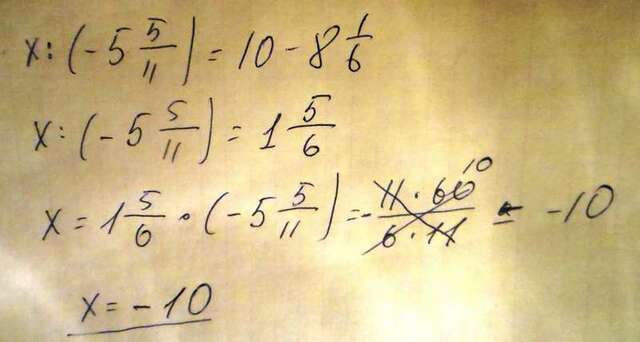 x : (-5 5/11) = 10 - 8 1/6
x : (-5 5/11) = 1 5/6
x = 1 5/6 · (-5 5/11) = - 11 · 60 10 / 6 · 11 = -10
x = -10